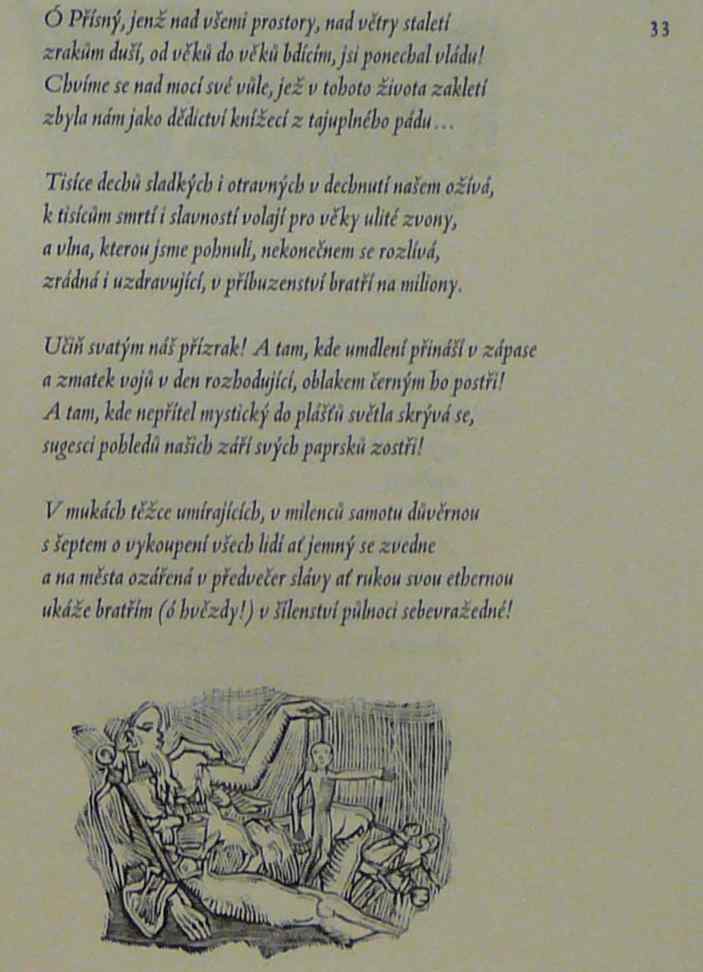 Ó Přísný, jenž nad všemi prostory, nad větry staletí
33
zrakům duší, od věků do věků bdícím, jsi ponechal vládu!
Chvíme se nad mocí své vůle, jež v tohoto života zakletí
zbyla nám jako dědictví knížecí z tajuplného pádu...
Tisíce dechů sladkých i otravných v dechnutí našem ožívá,
k tisícům smrtí i slavností volají pro věky ulité zvony,
a vlna, kterou jsme pohnuli, nekonečnem se rozlívá,
zrádná i uzdravující, v příbuzenství bratří na miliony.
Učiň svatým náš přízrak! A tam, kde umdlení přináší v zápase
a zmatek vojů v den rozhodující, oblakem černým ho postři!
A tam, kde nepřítel mystický do plášťů světla skrývá se,
sugesci pohledů našich září svých paprsků zostři!
V mukách těžce umírajících, v milenců samotu důvěrnou
s šeptem o vykoupení všech lidí ať jemný se zvedne
a na města ozářená v předvečer slávy ať rukou svou ethernou
ukáže bratřím (ó hvězdy!) v šílenství půlnoci sebevražedné!